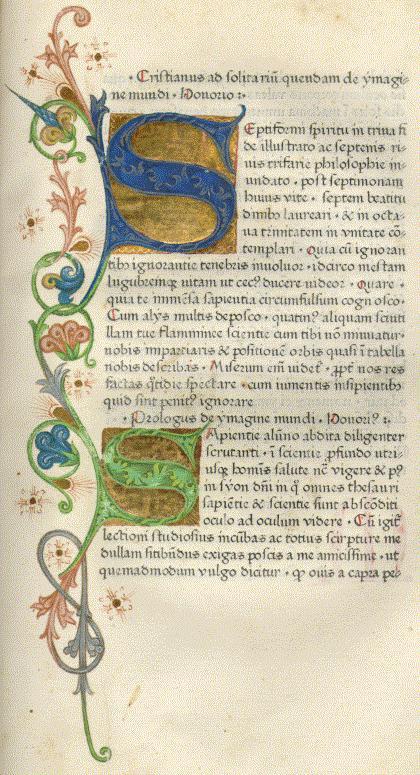 · Cristianus ad solitariū quendam de ymagi-
ne mundi · Honorio :·
Septiformi spiritu in trina fi
de illustrato ac septenis ri
uis trifarie philosophie in
undato · post septimonam
huius vite · septem beatitu
dinibꝫ laureari · & in octa
ua trinitatem in vnitate cō
templari · Quia cū ignoran
tibꝫ ignorantie tenebris inuoluor · idcirco mestam
lugubremqꝫ uitam ut cecꝰ ducere uideor · Quare ·
quia te immēsa sapientia circumfulsum cognosco ·
Cum alys multis deposco · quatinꝰ aliquam scinti
llam tue flamminee scientie cum tibi nō minuatur
nobis impartiaris & positionē orbis quasi ī tabella
nobis describas · Miserum eni uidetꝛ · ꝓpt nos res
factas qͥtidie spectare · cum iumentis insipientibꝫ
quid sint penitꝰ ignorare
· Prologus de ymagine mundi · Honorij :·
Sapientie alūno abdita diligenter
scrutanti · ī scientie ꝓfundo utri-
usqꝫ homīs salute nc̄ vigere &
in syon dn̄i in q̄ omnes thesauri
sapiētie & scientie sunt abscōditi
oculo ad oculum videre · Cū igit
lectioni studiosius incūbas ac totius scripture me
dullam sitibūdus exigas poscis a me amicissime · ut
quemadmodum vulgo dicitur · ꝙ ouis a capra pe-